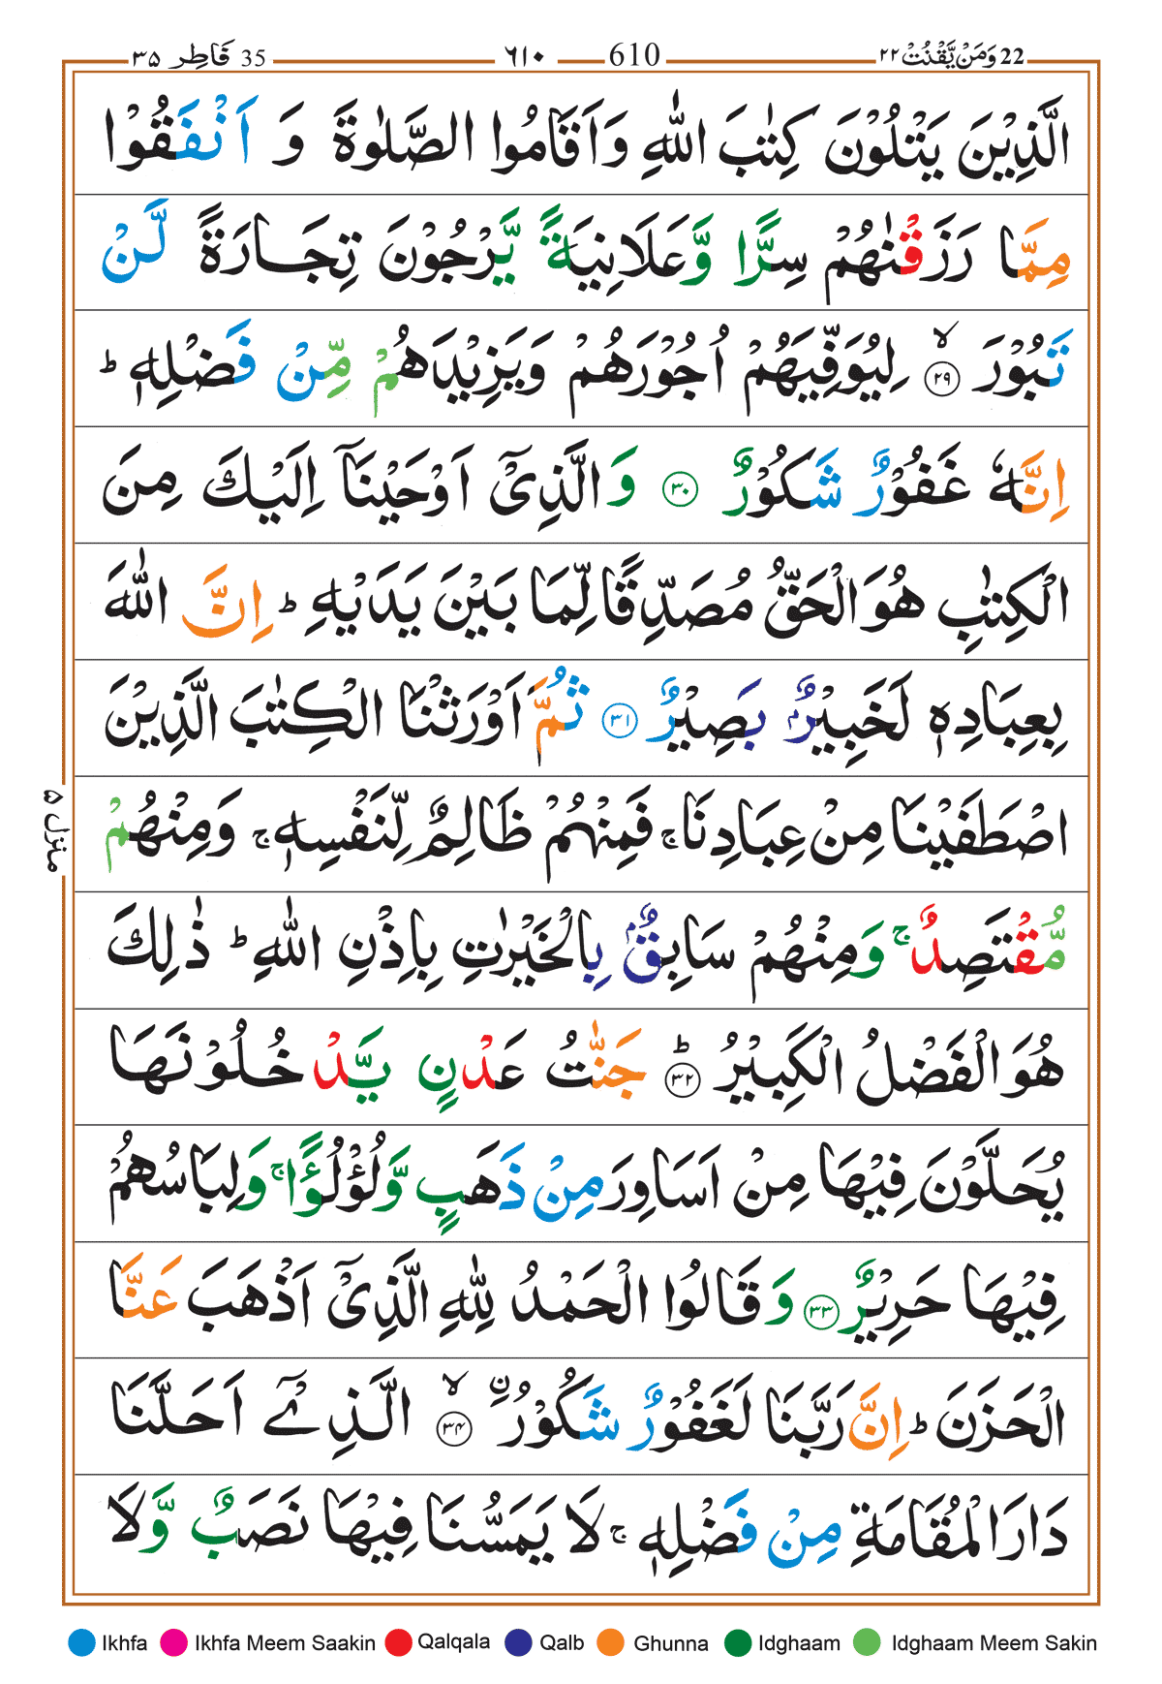 22 وَمَنْ يَّقْنُتْ ٢٢ 610 ٦١٠ 35 فَاطِر ٣٥
الَّذِيْنَ يَتْلُوْنَ كِتٰبَ اللّٰهِ وَاَقَامُوا الصَّلٰوةَ وَ اَنْفَقُوْا
مِمَّا رَزَقْنٰهُمْ سِرًّا وَّعَلَانِيَةً يَّرْجُوْنَ تِجَارَةً لَّنْ
تَبُوْرَ ۙ‏﴿۲۹﴾ لِيُوَفِّيَهُمْ اُجُوْرَهُمْ وَيَزِيْدَهُمْ مِّنْ فَضْلِهٖ ؕ
اِنَّهٗ غَفُوْرٌ شَكُوْرٌ ﴿۳۰﴾ وَالَّذِيْۤ اَوْحَيْنَاۤ اِلَيْكَ مِنَ
الْكِتٰبِ هُوَ الْحَقُّ مُصَدِّقًا لِّمَا بَيْنَ يَدَيْهِ ؕ اِنَّ اللّٰهَ
بِعِبَادِهٖ لَخَبِيْرٌۢ بَصِيْرٌ ﴿۳۱﴾ ثُمَّ اَوْرَثْنَا الْكِتٰبَ الَّذِيْنَ
اصْطَفَيْنَا مِنْ عِبَادِنَا ۚ فَمِنْهُمْ ظَالِمٌ لِّنَفْسِهٖ ۚ وَمِنْهُمْ
مُّقْتَصِدٌ ۚ وَمِنْهُمْ سَابِقٌۢ بِالْخَيْرٰتِ بِاِذْنِ اللّٰهِ ؕ ذٰلِكَ
هُوَ الْفَضْلُ الْكَبِيْرُ ؕ‏﴿۳۲﴾ جَنّٰتُ عَدْنٍ يَّدْخُلُوْنَهَا
يُحَلَّوْنَ فِيْهَا مِنْ اَسَاوِرَ مِنْ ذَهَبٍ وَّلُؤْلُؤًا ۚ وَلِبَاسُهُمْ
فِيْهَا حَرِيْرٌ ﴿۳۳﴾ وَقَالُوا الْحَمْدُ لِلّٰهِ الَّذِيْۤ اَذْهَبَ عَنَّا
الْحَزَنَ ؕ اِنَّ رَبَّنَا لَغَفُوْرٌ شَكُوْرُ ۨۙ‏﴿۳۴﴾ الَّذِيْۤ اَحَلَّنَا
دَارَ الْمُقَامَةِ مِنْ فَضْلِهٖ ۚ لَا يَمَسُّنَا فِيْهَا نَصَبٌ وَّلَا
منزل ۵
Ikhfa Ikhfa Meem Saakin Qalqala Qalb Ghunna Idghaam Idghaam Meem Sakin